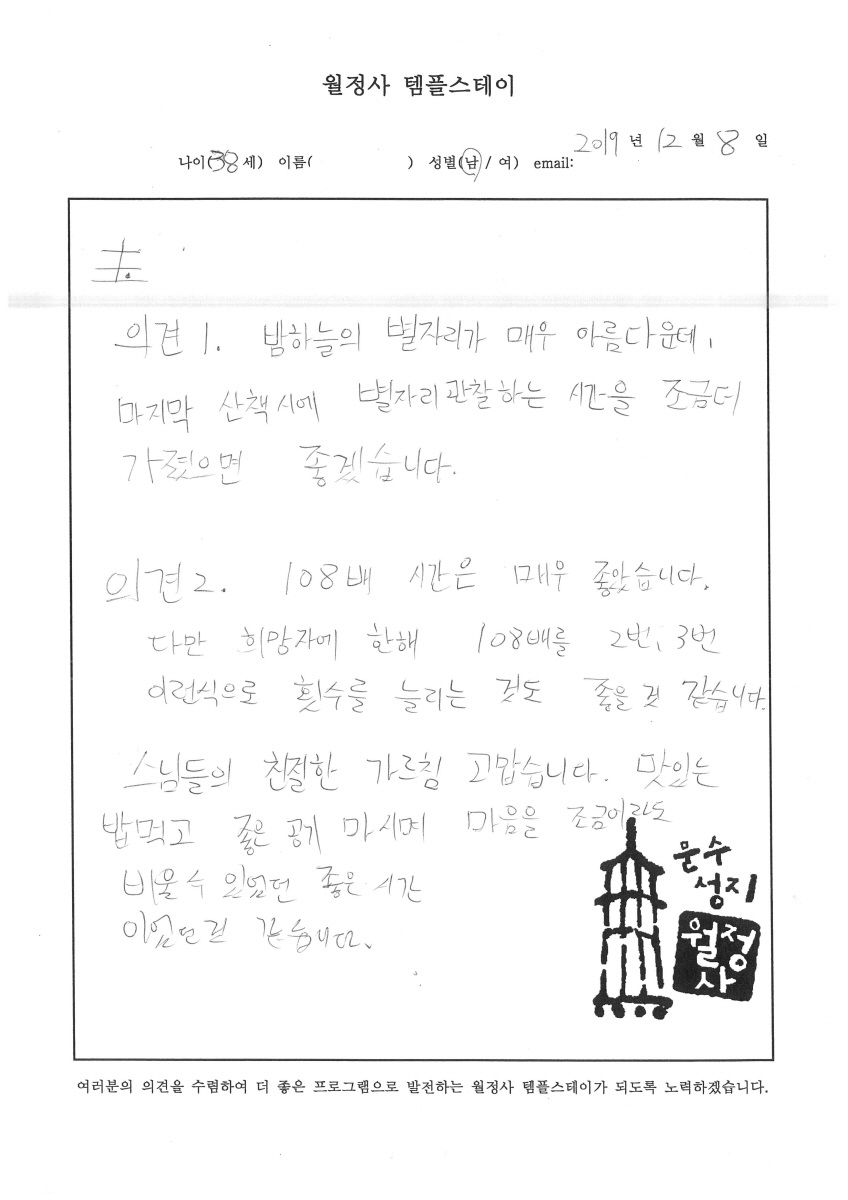 월정사 템플스테이
2019 년 12 월 8 일
나이(38세) 이름( ) 성별(남 / 여) email:
의견 1. 밤하늘의 별자리가 매우 아름다운데,
마지막 산책시에 별자리관찰하는 시간을 조금더
가졌으면 좋겠습니다.
의견 2. 108배 시간은 매우 좋았습니다.
다만 희망자에 한해 108배를 2번, 3번
이런식으로 횟수를 늘리는 것도 좋을 것 같습니다.
스님들의 친절한 가르침 고맙습니다. 맛있는
밥먹고 좋은 공기 마시며 마음을 조금이라도
비울수 있었던 좋은 시간
이었던것 같습니다.
문수
성지
월정
사
여러분의 의견을 수렴하여 더 좋은 프로그램으로 발전하는 월정사 템플스테이가 되도록 노력하겠습니다.